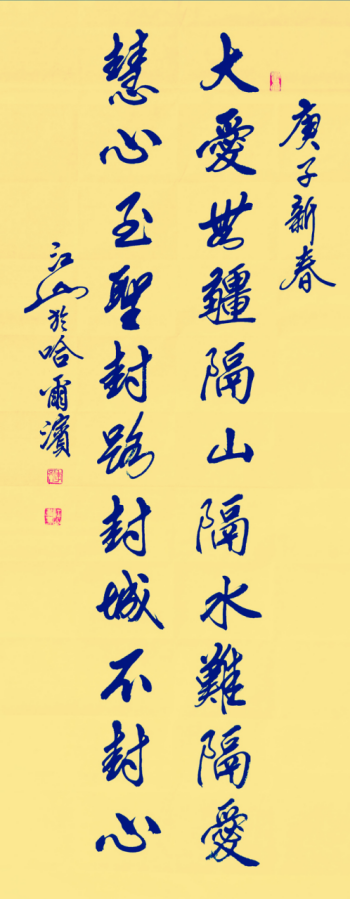 庚子新春
大愛無疆隔山隔水難隔愛
慧心至聖封路封城不封心
江山於哈爾濱